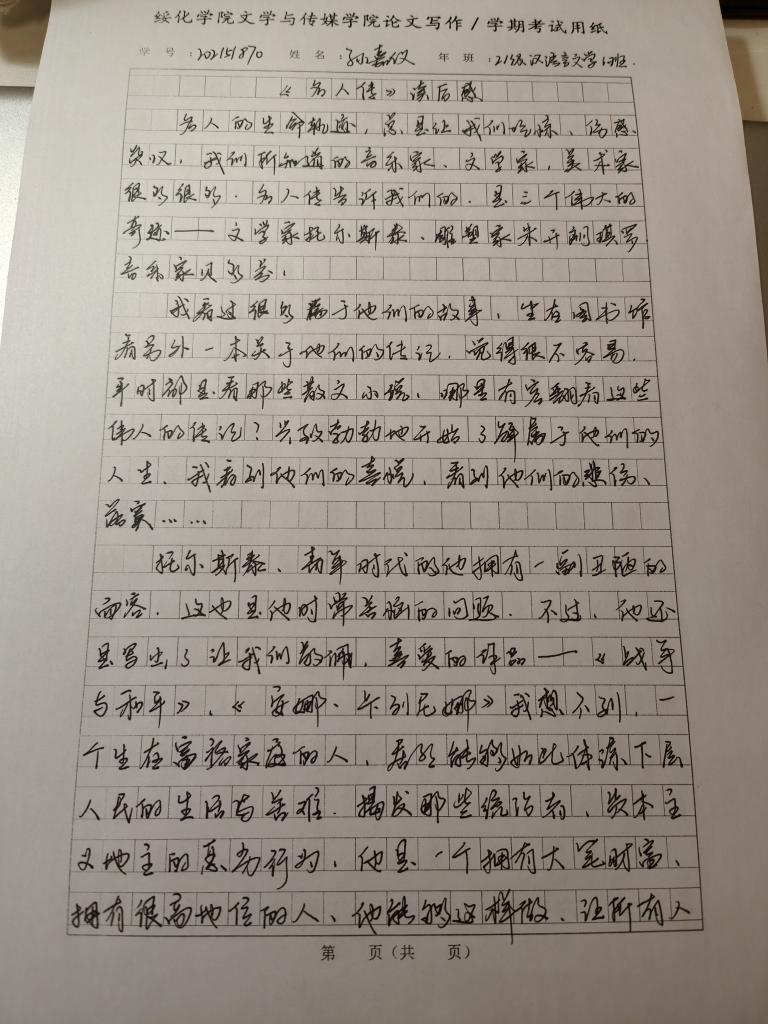 绥化学院文学与传媒学院论文写作/学期考试用纸
学 号 :202151870 姓 名 :孙嘉仪 年 班 :21级汉语言文学1班.
《名人传》读后感
名人的生命轨迹,总是让我们吃惊、伤感、
类叹,我们所知道的音乐家、文学家,美术家
很多很多.名人传告诉我们的.是三个伟大的
奇迹——文学家托尔斯泰、雕塑家米开朗琪罗.
音乐家贝多芬.
我看过很多属于他们的故事,坐在图书馆
看另外一本关于他们的传记.觉得很不容易.
平时都是看那些散文小说,哪里有空翻看这些
伟人的传记?兴致勃勃地开始了解属于他们的
人生.我看到他们的喜悦,看到他们的悲伤、
落寞……
托尔斯泰、青年时代的他拥有一副丑陋的
面容.这也是他时常苦恼的问题.不过,他还
是写出了让我们敬佩,喜爱的作品——《战争
与和平》,《安娜·卡列尼娜》我想不到.一
个生在富裕家庭的人,居然能够如此体谅下层
人民的生活与苦难.揭发那些统治者,资本主
义地主的恶劣行为,他是一个拥有大笔财富、
拥有很高地位的人、他能够这样做.让所有人
第 页(共 页)